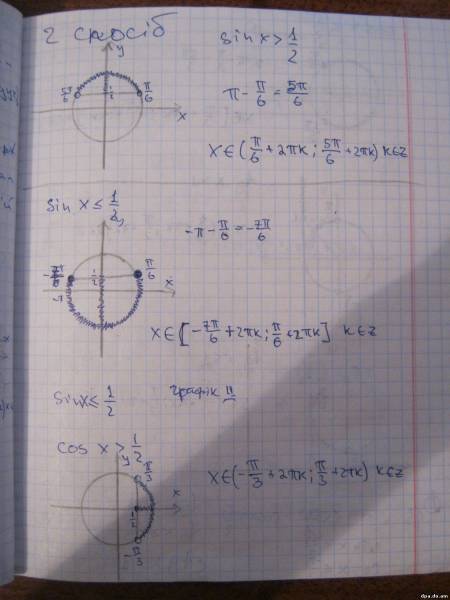 2 спосіб
sin x > 1/2
y
7π/6
π/6
1/2
x
π - π/6 = 5π/6
x ∈ (π/6 + 2πk; 5π/6 + 2πk) k∈Z
sin x ≤ 1/2
y
-π - π/6 = -7π/6
-7π/6
1/2
π/6
x
-π
x ∈ [-7π/6 + 2πk; π/6 + 2πk] k∈Z
sin x ≤ 1/2
графік
cos x > 1/2
y
π/3
x
1/2
-π/3
x ∈ (-π/3 + 2πk; π/3 + 2πk) k∈Z
dpa.do.am